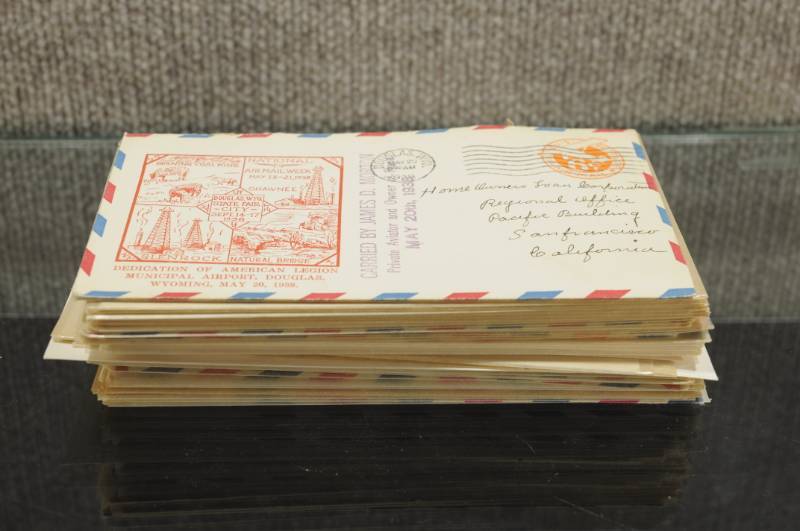 NATIONAL
AIR MAIL WEEK
MAY 15-21, 1938
SHAWNEE
DOUGLAS, WYO.
STATE FAIR
CITY
SEPT. 14-17
1938
GLENROCK
NATURAL BRIDGE
DEDICATION OF AMERICAN LEGION
MUNICIPAL AIRPORT, DOUGLAS,
WYOMING, MAY 20, 1938.
CARRIED BY JAMES D.
Private Aviator and Owner
MAY 20th, 1938
DOUGLAS
MAY 20
AM
Home Owners Loan Corporation
Regional Office
Pacific Building
Sanfrancisco
California